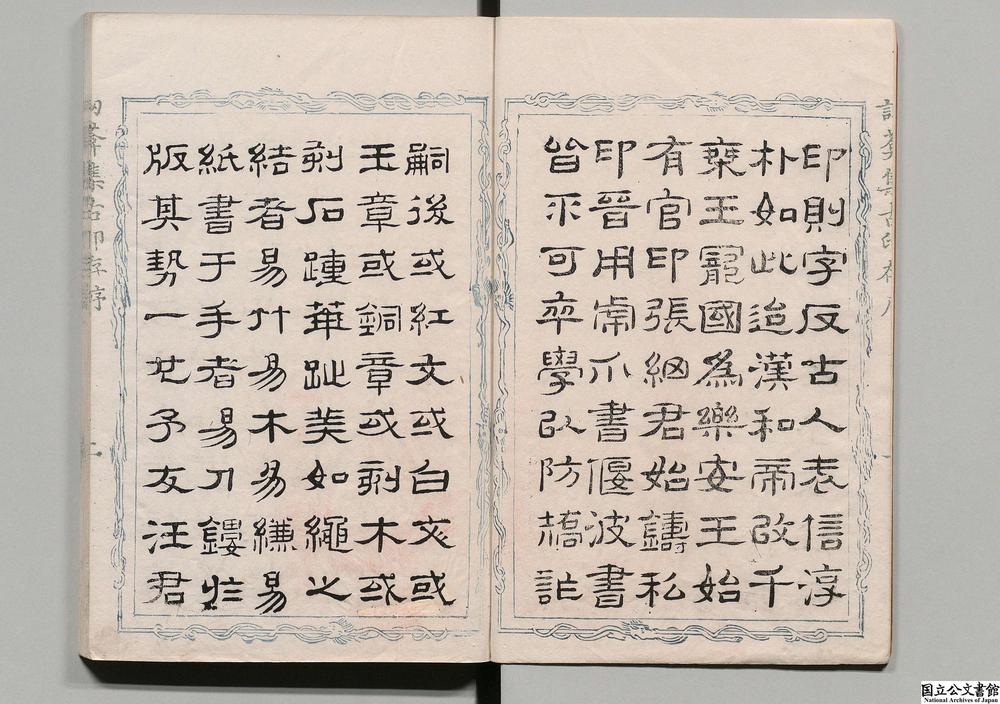 印則字反古人表信淳
朴如此迨漢和帝改千
乗王寵國為樂安王始
有官印張綱君始鑄私
印晉用虎爪書偃波書
皆不可卒學以防矯詐
嗣後或紅文或白文或
玉章或銅章或剥木或
剥石踵華趾美如繩之
結者易竹易木易縑易
紙書于手者易刀鏤於
版其勢一也予友汪君
国立公文書館
National Archives of Japan